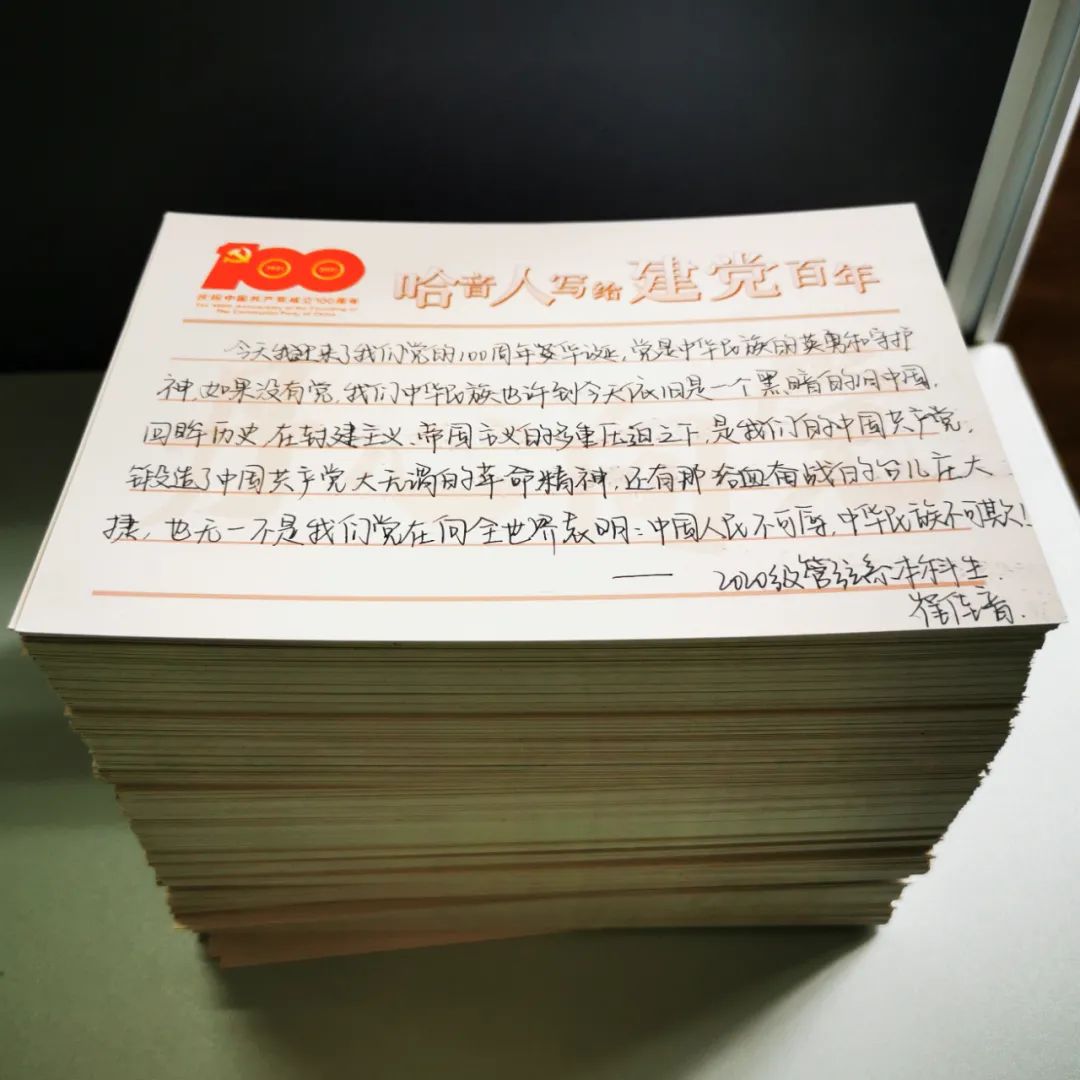 100
庆祝中国共产党成立100周年
The 100th Anniversary of the Founding of
The Communist Party of China
哈音人写给建党百年
今天我迎来了我们党的100周年华诞,党是中华民族的英勇和守护
神,如果没有党,我们中华民族也许到今天依旧是一个黑暗的旧中国,
回眸历史,在封建主义、帝国主义的多重压迫之下,是我们的中国共产党,
锻造了中国共产党大无谓的革命精神,还有那给血奋战的台儿庄大
捷,也无一不是我们党在向全世界表明:中国人民不可辱,中华民族不可欺!
—— 2020级管弦系本科生.
佳音.